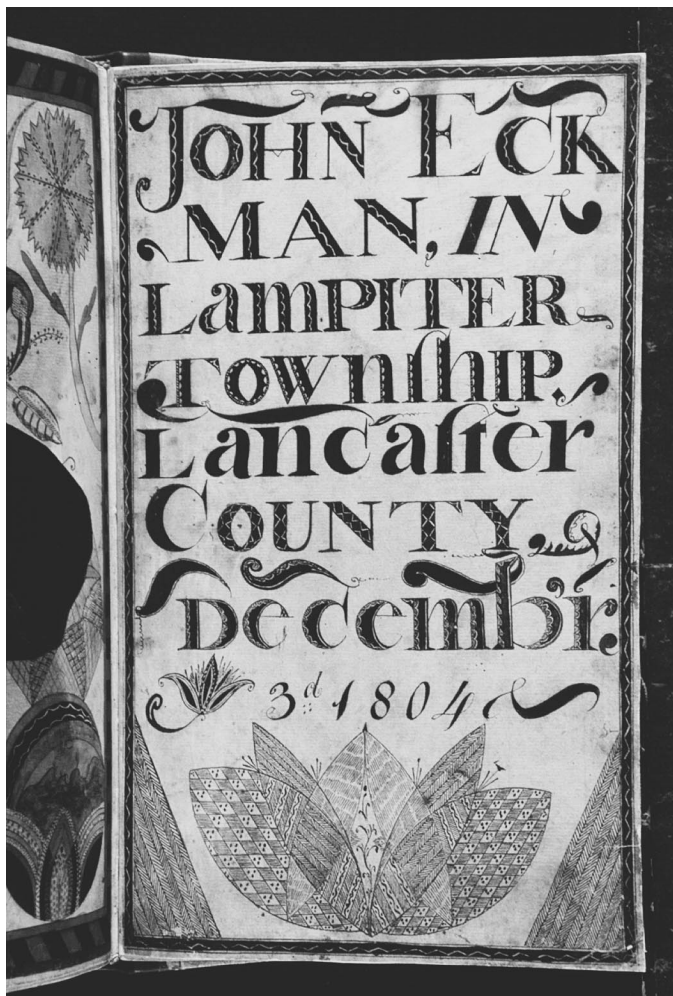 JOHN ECK
MAN, IN
LamPITER
Townſhip.
Lancaſter
COUNTY.
Decembr.
3d 1804